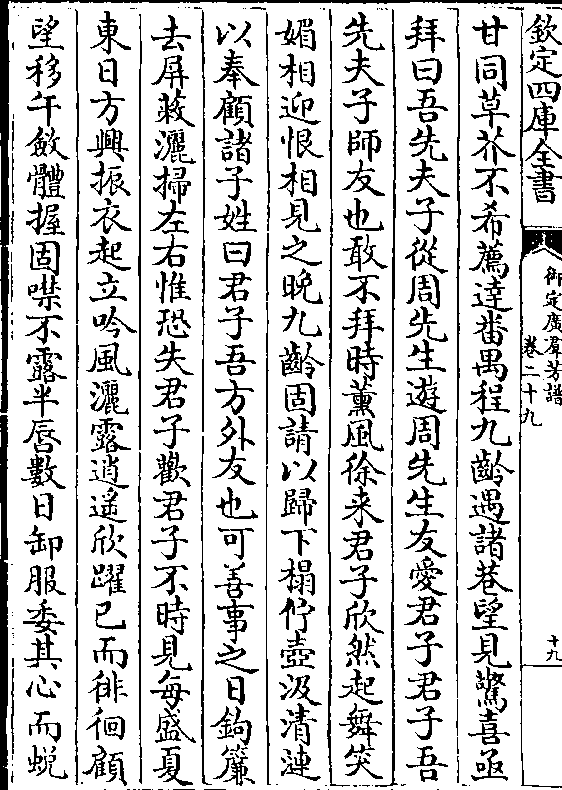 欽定四庫全書
御定廣羣芳譜
卷二十九
十九
甘同草芥不希薦達番禺程九齡遇諸巷望見驚喜亟
拜曰吾先夫子從周先生遊周先生友愛君子君子吾
先夫子師友也敢不拜時薰風徐来君子欣然起舞笑
媚相迎恨相見之晚九齡固請以歸下榻佇壺汲清漣
以奉顧諸子姓曰君子吾方外友也可善事之日鉤簾
去屏蔌灑掃左右惟恐失君子歡君子不時見每盛夏
東日方興振衣起立吟風灑露逍遥欣躍已而徘徊顧
望移午斂體握固噤不露半唇數日卸服委其心而蛻